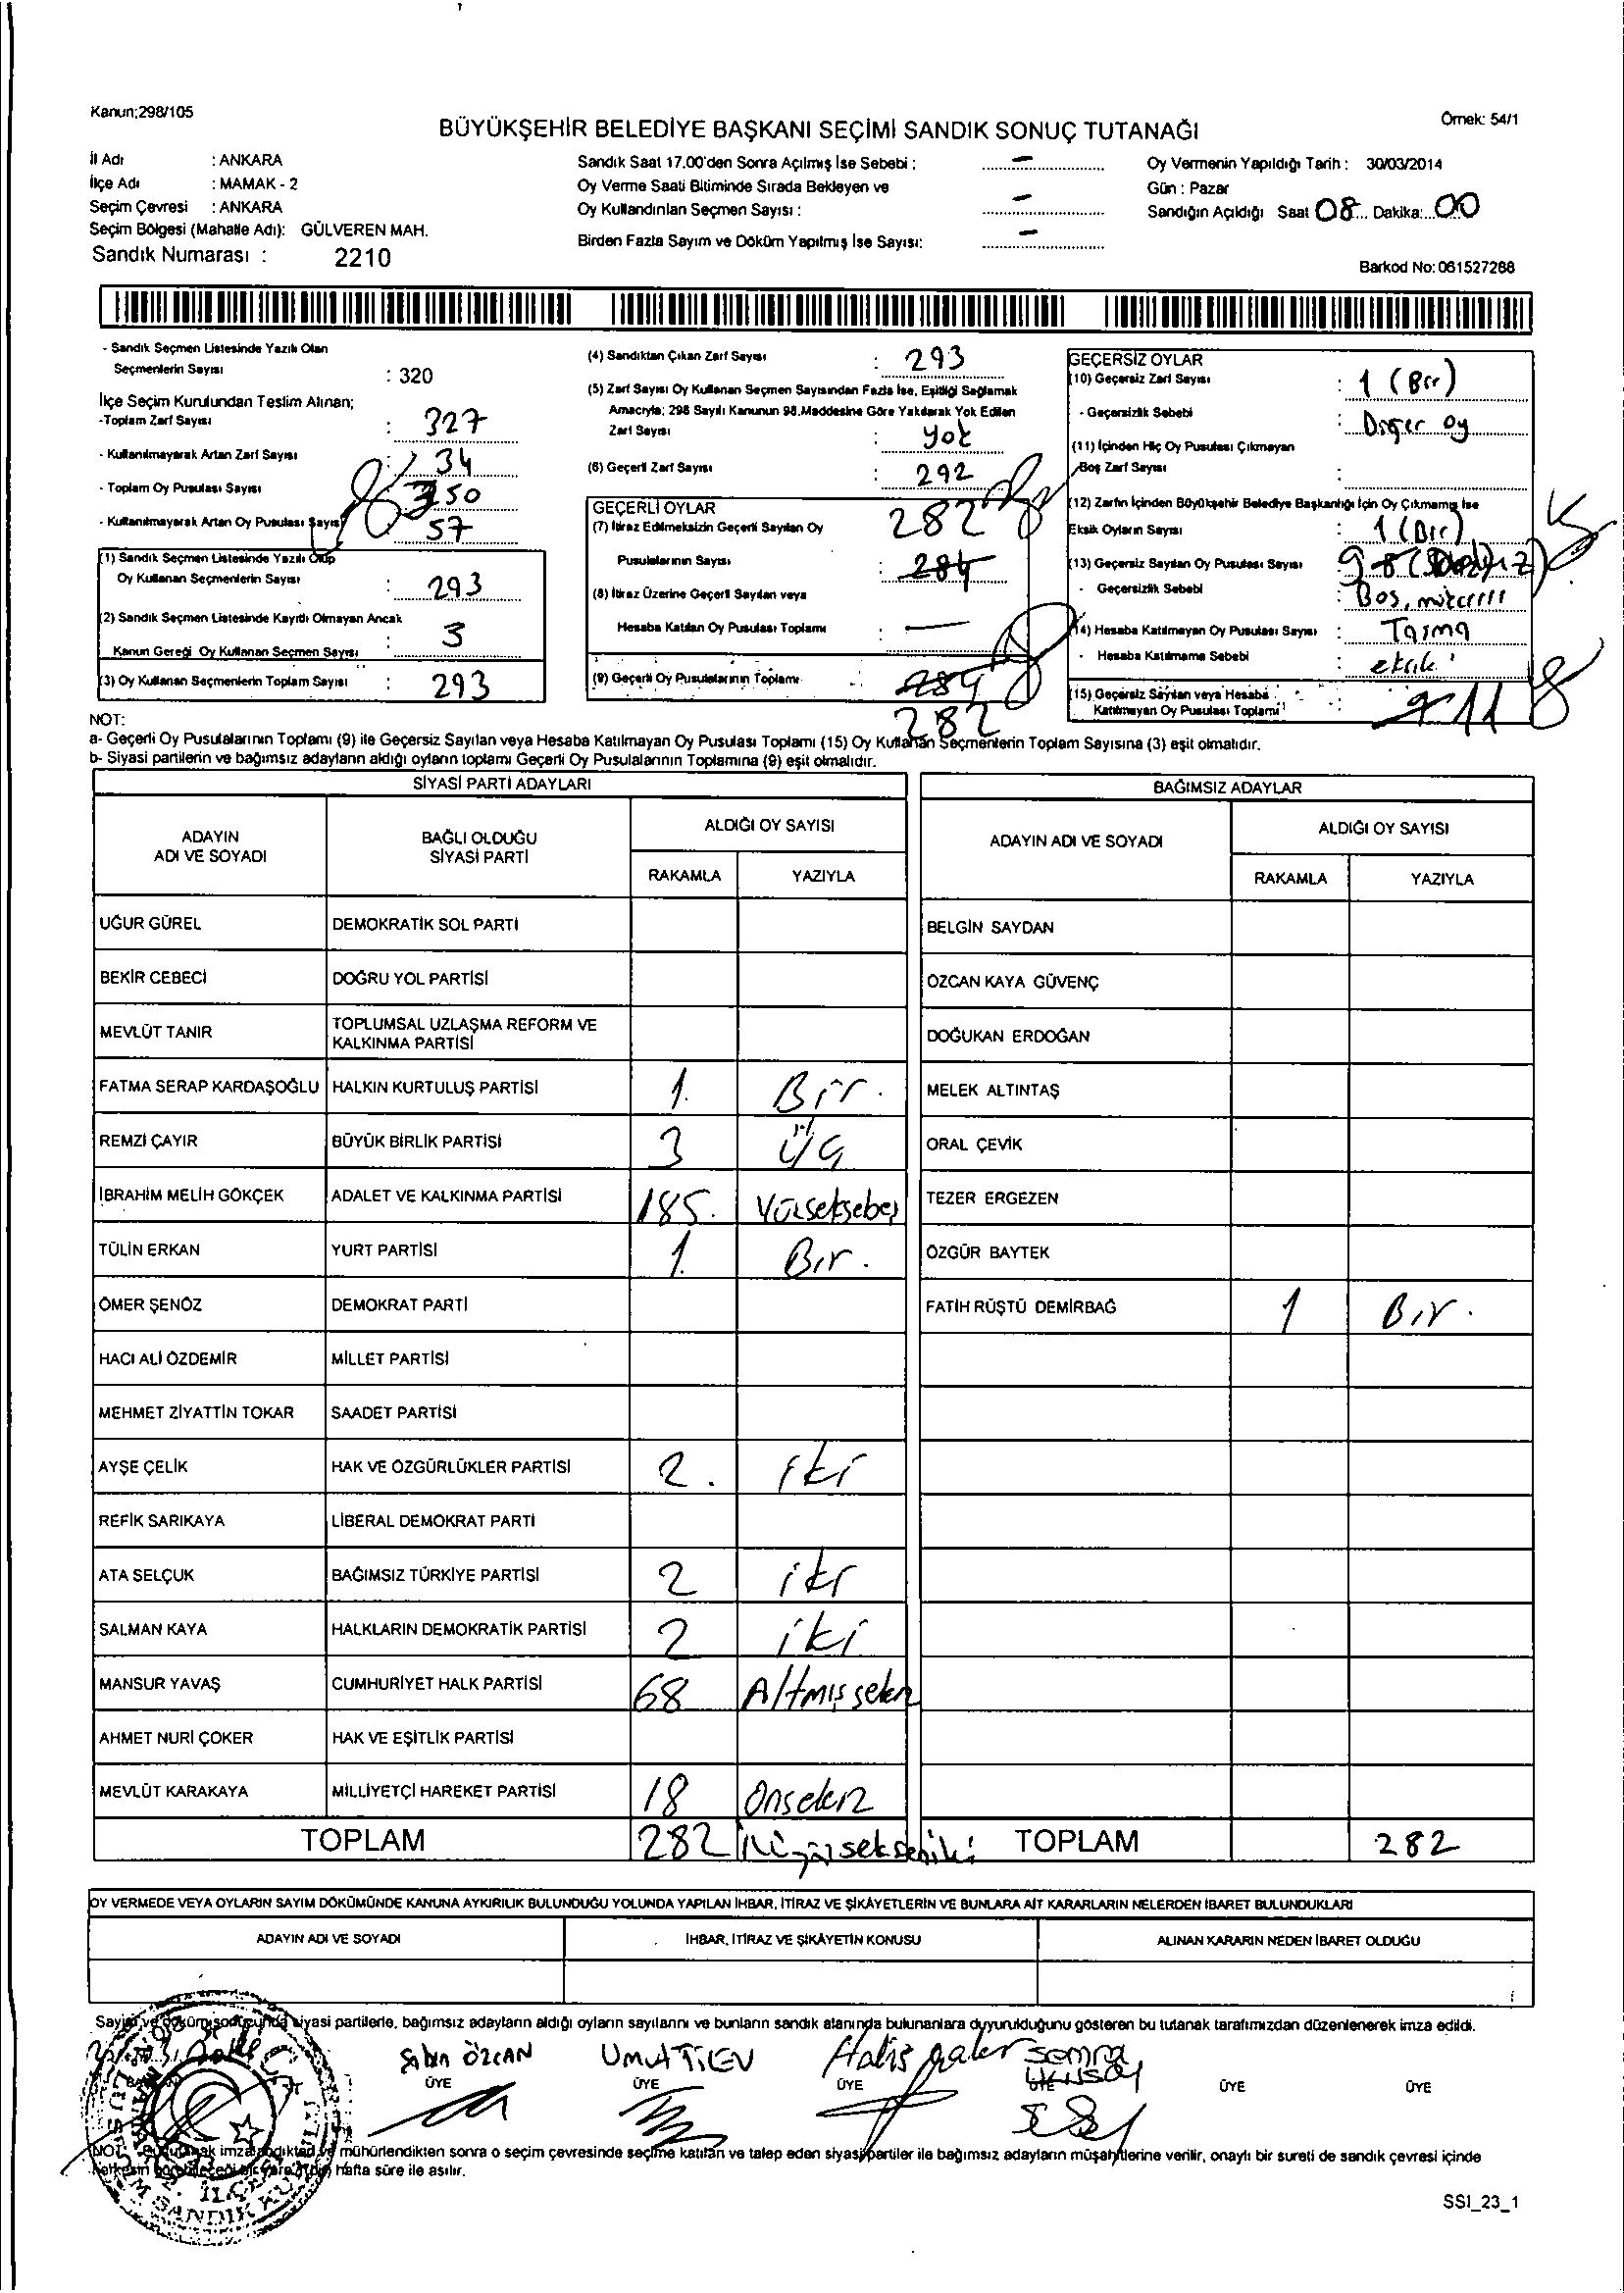 Kanun;298/105
Örnek: 54/1
BÜYÜKŞEHİR BELEDİYE BAŞKANI SEÇİMİ SANDIK SONUÇ TUTANAĞI
İl Adı : ANKARA
İlçe Adı : MAMAK - 2
Seçim Çevresi : ANKARA
Seçim Bölgesi (Mahalle Adı): GÜLVEREN MAH.
Sandık Numarası : 2210
Sandık Saat 17.00'den Sonra Açılmış İse Sebebi : -
Oy Verme Saati Bitiminde Sırada Bekleyen ve
Oy Kullandırılan Seçmen Sayısı : -
Birden Fazla Sayım ve Döküm Yapılmış İse Sayısı: -
Oy Vermenin Yapıldığı Tarih : 30/03/2014
Gün : Pazar
Sandığın Açıldığı Saat 08 Dakika: 00
Barkod No: 061527288
- Sandık Seçmen Listesinde Yazılı Olan
Seçmenlerin Sayısı : 320
İlçe Seçim Kurulundan Teslim Alınan;
-Toplam Zarf Sayısı : 327
- Kullanılmayarak Artan Zarf Sayısı : 34
- Toplam Oy Pusulası Sayısı : 350
- Kullanılmayarak Artan Oy Pusulası Sayısı 57
(1) Sandık Seçmen Listesinde Yazılı Olup
Oy Kullanan Seçmenlerin Sayısı : 293
(2) Sandık Seçmen Listesinde Kayıtlı Olmayan Ancak
Kanun Gereği Oy Kullanan Seçmen Sayısı : 3
(3) Oy Kullanan Seçmenlerin Toplam Sayısı : 293
(4) Sandıktan Çıkan Zarf Sayısı : 293
(5) Zarf Sayısı Oy Kullanan Seçmen Sayısından Fazla İse, Eşitliği Sağlamak
Amacıyla; 298 Sayılı Kanunun 98.Maddesine Göre Yakılarak Yok Edilen
Zarf Sayısı : yok
(6) Geçerli Zarf Sayısı : 292
GEÇERLİ OYLAR
(7) İtiraz Edilmeksizin Geçerli Sayılan Oy 282
Pusulalarının Sayısı : 284
(8) İtiraz Üzerine Geçerli Sayılan veya
Hesaba Katılan Oy Pusulası Toplamı : -
(9) Geçerli Oy Pusulalarının Toplamı : 284
282
GEÇERSİZ OYLAR
(10) Geçersiz Zarf Sayısı : 1 (Bir)
- Geçersizlik Sebebi : Diğer oy
(11) İçinden Hiç Oy Pusulası Çıkmayan
Boş Zarf Sayısı :
(12) Zarfın İçinden Büyükşehir Belediye Başkanlığı İçin Oy Çıkmamış İse
Eksik Oyların Sayısı : 1 (Bir)
(13) Geçersiz Sayılan Oy Pusulası Sayısı : 9
- Geçersizlik Sebebi : Boş,
(14) Hesaba Katılmayan Oy Pusulası Sayısı : Taşma
- Hesaba Katılmama Sebebi : eksik
(15) Geçersiz Sayılan veya Hesaba
Katılmayan Oy Pusulası Toplamı : 11
NOT:
a- Geçerli Oy Pusulalarının Toplamı (9) ile Geçersiz Sayılan veya Hesaba Katılmayan Oy Pusulası Toplamı (15) Oy Kullanan Seçmenlerin Toplam Sayısına (3) eşit olmalıdır.
b- Siyasi partilerin ve bağımsız adayların aldığı oyların toplamı Geçerli Oy Pusulalarının Toplamına (9) eşit olmalıdır.
SİYASİ PARTİ ADAYLARI
ADAYIN ADI VE SOYADI
BAĞLI OLDUĞU SİYASİ PARTİ
ALDIĞI OY SAYISI
RAKAMLA YAZIYLA
UĞUR GÜREL DEMOKRATİK SOL PARTİ
BEKİR CEBECİ DOĞRU YOL PARTİSİ
MEVLÜT TANIR TOPLUMSAL UZLAŞMA REFORM VE KALKINMA PARTİSİ
FATMA SERAP KARDAŞOĞLU HALKIN KURTULUŞ PARTİSİ 1. Bir.
REMZİ ÇAYIR BÜYÜK BİRLİK PARTİSİ 3 Üç
İBRAHİM MELİH GÖKÇEK ADALET VE KALKINMA PARTİSİ 185. Yüzseksebeş
TÜLİN ERKAN YURT PARTİSİ 1. Bir.
ÖMER ŞENÖZ DEMOKRAT PARTİ
HACI ALİ ÖZDEMİR MİLLET PARTİSİ
MEHMET ZİYATTİN TOKAR SAADET PARTİSİ
AYŞE ÇELİK HAK VE ÖZGÜRLÜKLER PARTİSİ 2. iki
REFİK SARIKAYA LİBERAL DEMOKRAT PARTİ
ATA SELÇUK BAĞIMSIZ TÜRKİYE PARTİSİ 2 iki
SALMAN KAYA HALKLARIN DEMOKRATİK PARTİSİ 2 iki
MANSUR YAVAŞ CUMHURİYET HALK PARTİSİ 68 Altmışsekiz
AHMET NURİ ÇOKER HAK VE EŞİTLİK PARTİSİ
MEVLÜT KARAKAYA MİLLİYETÇİ HAREKET PARTİSİ 18 Onsekiz
TOPLAM 282 ikiyüzsekseniki
BAĞIMSIZ ADAYLAR
ADAYIN ADI VE SOYADI
ALDIĞI OY SAYISI
RAKAMLA YAZIYLA
BELGİN SAYDAN
ÖZCAN KAYA GÜVENÇ
DOĞUKAN ERDOĞAN
MELEK ALTINTAŞ
ORAL ÇEVİK
TEZER ERGEZEN
ÖZGÜR BAYTEK
FATİH RÜŞTÜ DEMİRBAĞ 1 Bir.
TOPLAM 282
OY VERMEDE VEYA OYLARIN SAYIM DÖKÜMÜNDE KANUNA AYKIRILIK BULUNDUĞU YOLUNDA YAPILAN İHBAR, İTİRAZ VE ŞİKÂYETLERİN VE BUNLARA AİT KARARLARIN NELERDEN İBARET BULUNDUKLARI
ADAYIN ADI VE SOYADI
İHBAR, İTİRAZ VE ŞİKÂYETİN KONUSU
ALINAN KARARIN NEDEN İBARET OLDUĞU
Sayım ve döküm sonucunda siyasi partilerle, bağımsız adayların aldığı oyların sayılarını ve bunların sandık alanında bulunanlara duyurulduğunu gösteren bu tutanak tarafımızdan düzenlenerek imza edildi.
ÖZCAN
ÜYE ÜYE ÜYE ÜYE ÜYE ÜYE
NOT: Bu tutanak imzalandıktan ve mühürlendikten sonra o seçim çevresinde seçime katılan ve talep eden siyasi partiler ile bağımsız adayların müşahitlerine verilir, onaylı bir sureti de sandık çevresi içinde
herkesin görebileceği bir yere bir hafta süre ile asılır.
SSI_23_1